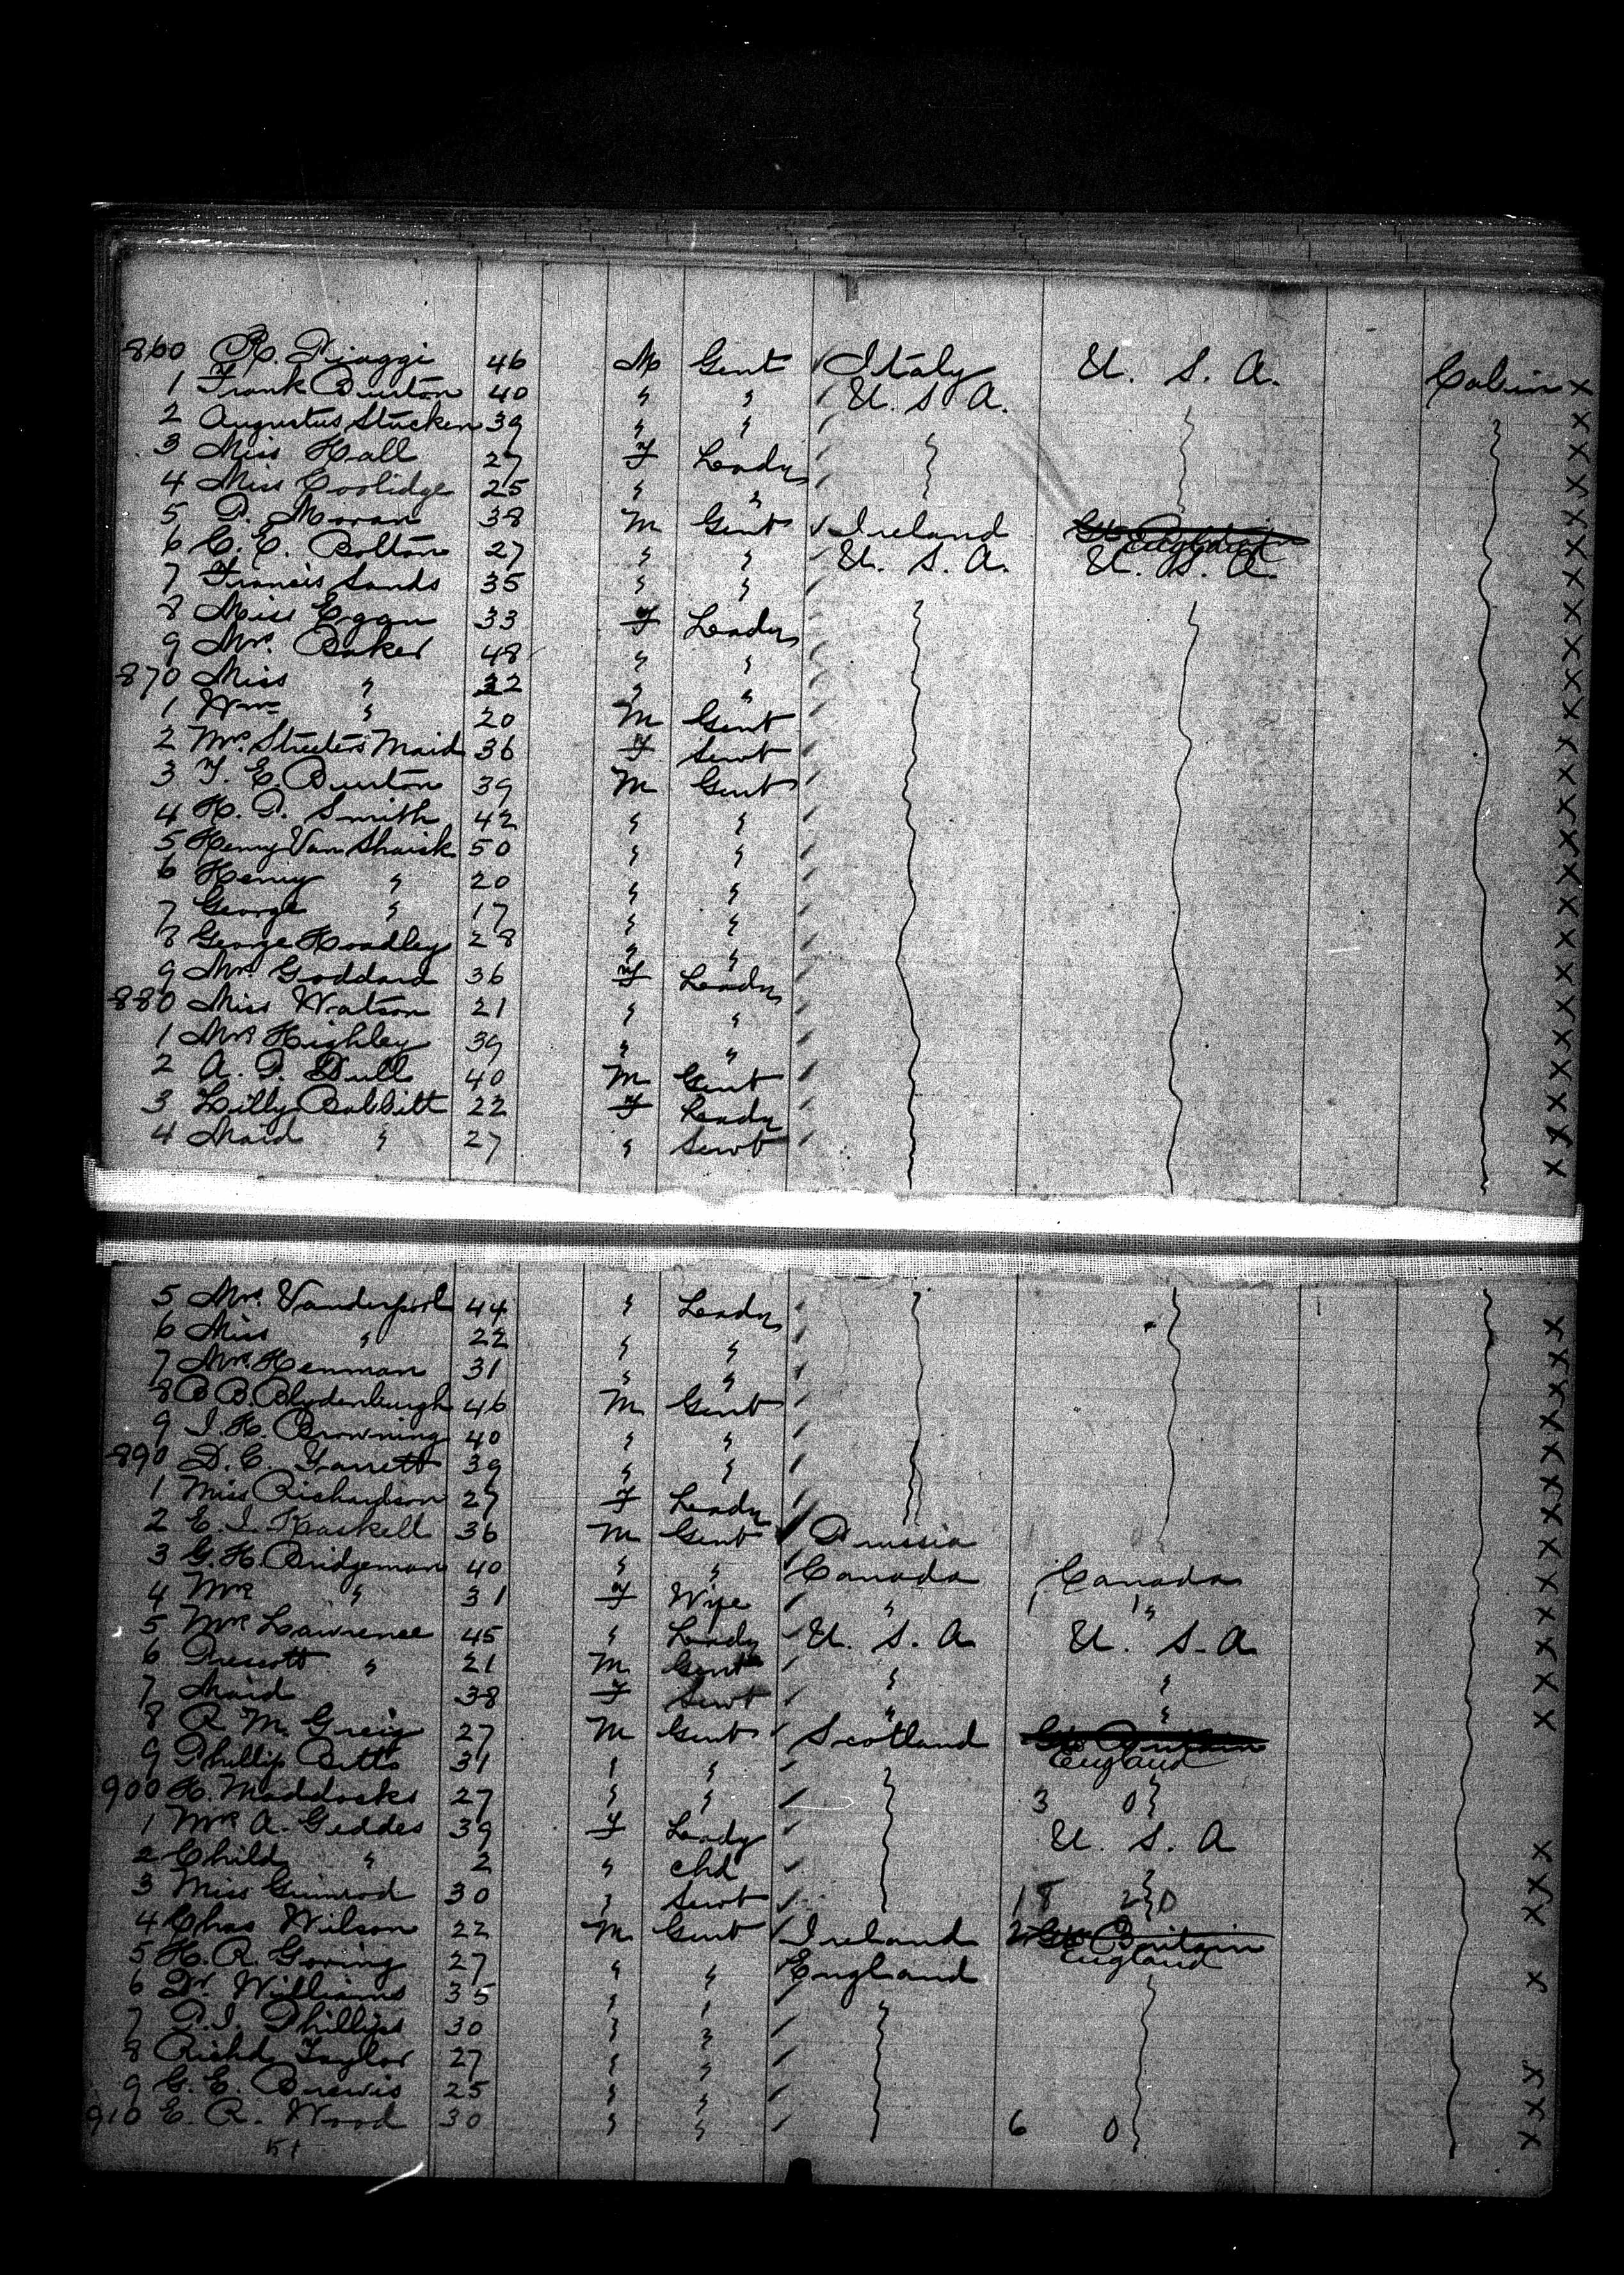 860 R. Piaggi 46 M Gent Italy U. S. A. Cabin X
1 Frank Burton 40 " " U. S. A. X
2 Augustus Stucken 39 " " X
3 Miss Hall 27 F Lady X
4 Miss Coolidge 25 " " X
5 P. Moran 38 M Gent Ireland England X
6 C. C. Bolton 27 " " U. S. A. U. S. A. X
7 Francis Sands 35 " " X
8 Miss 33 F Lady X
9 Mrs. Baker 48 " " X
870 Miss " 22 " " X
1 Wm " 20 M Gent X
2 Mrs. Streeters Maid 36 F Servt X
3 T. E. Burton 39 M Gent X
4 H. P. Smith 42 " " X
5 Henry Van Shaick 50 " " X
6 Henry " 20 " " X
7 George " 17 " " X
8 George Hoadley 28 " " X
9 Mrs Goddard 36 F Lady X
880 Miss Watson 21 " " X
1 Mrs Highley 39 " " X
2 A. P. Dull 40 M Gent X
3 Lilly Babbitt 22 F Lady X
4 Maid " 27 " Servt X
5 Mrs. Vanderpool 44 " Lady X
6 Miss " 22 " " X
7 Mrs Henman 31 " " X
8 B. B. Blydenburgh 46 M Gent X
9 J. H. Browning 40 " " X
890 D. C. Garrett 39 " " X
1 Miss Richardson 27 F Lady X
2 E. I. 36 M Gent Prussia X
3 G. H. Bridgeman 40 " " Canada Canada X
4 Mrs " 31 F Wife " " X
5 Mrs Lawrence 45 " Lady U. S. A U. S. A X
6 Prescott " 21 M Gent " " X
7 Maid 38 F Servt " " X
8 R. M. Greig 27 M Gent Scotland Gt Britain England
9 Phillip Betts 31 " "
900 H. Maddocks 27 " " 3 0
1 Mrs A. Geddes 39 F Lady U. S. A X
2 Child " 2 " chd X
3 Miss Grimrod 30 " Servt 18 2 0 X
4 Chas Wilson 22 M Gent Ireland Gt Britain England
5 H. R. Goring 27 " " England X
6 Dr. Williams 35 " "
7 P. J. Phillips 30 " "
8 Richd Taylor 27 " " X
9 G. E. Brewis 25 " " X
910 E. R. Wood 30 " " 6 0 X